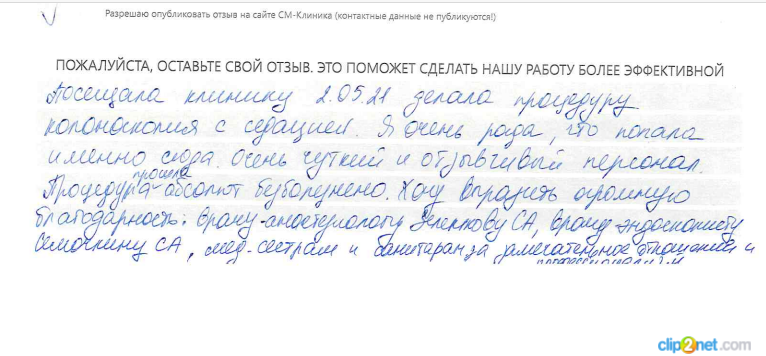 Разрешаю опубликовать отзыв на сайте СМ-Клиника (контактные данные не публикуются!)
ПОЖАЛУЙСТА, ОСТАВЬТЕ СВОЙ ОТЗЫВ. ЭТО ПОМОЖЕТ СДЕЛАТЬ НАШУ РАБОТУ БОЛЕЕ ЭФФЕКТИВНОЙ
Посещала клинику 2.05.21 делала процедуру
колоноскопия с седацией. Я очень рада, что попала
именно сюда. Очень чуткий и отзывчивый персонал.
Процедура прошла абсолют безболезнено. Хочу выразить огромную
благодарность: врачу-анестезиологу СА, врачу эндоскописту
Семочкину СА, мед. сестрам и санитарам за замечательное отношение и
профессионализм
clip2net.com